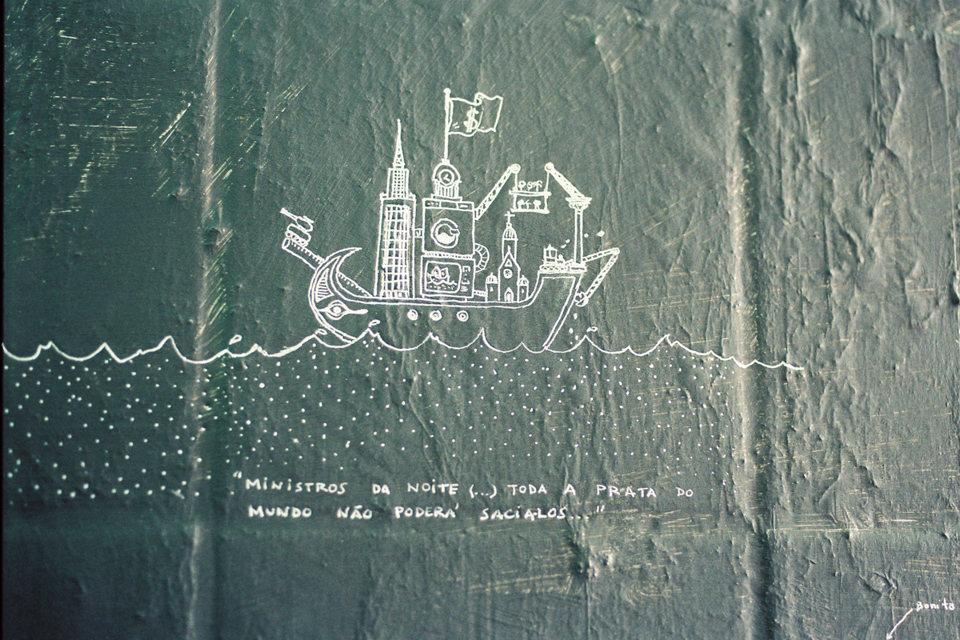 $
"MINISTROS DA NOITE (...) TODA A PRATA DO
MUNDO NÃO PODERÁ SACIALOS..."
Bonito